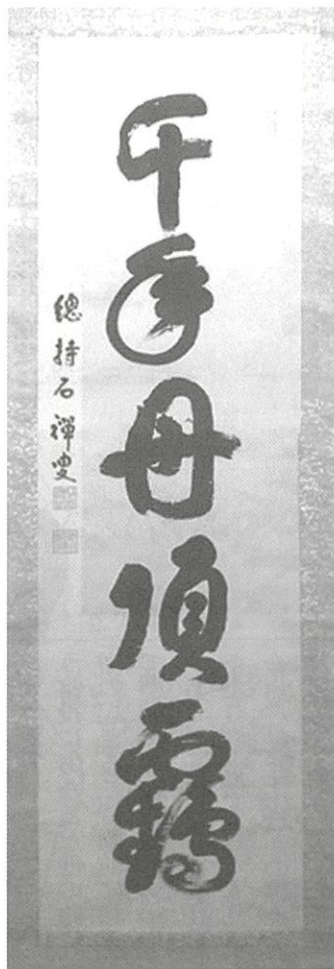 千年丹頂靍
總持石禅叟